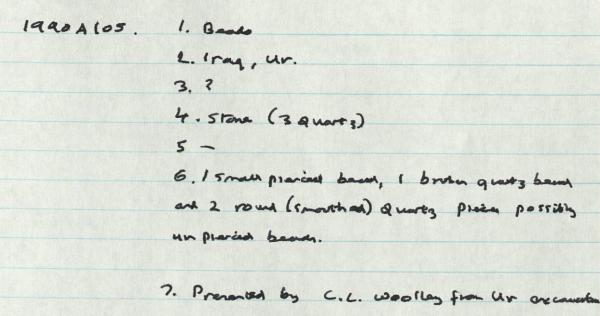 1990A105. 1. Beads
2. Iraq, Ur.
3. ?
4. Stone (3 Quartz)
5 -
6. 1 small pierced bead, 1 broken quartz bead
and 2 round (smoothed) Quartz pieces possibly
unpierced beads.
7. Presented by C.L. Woolley from Ur excavation